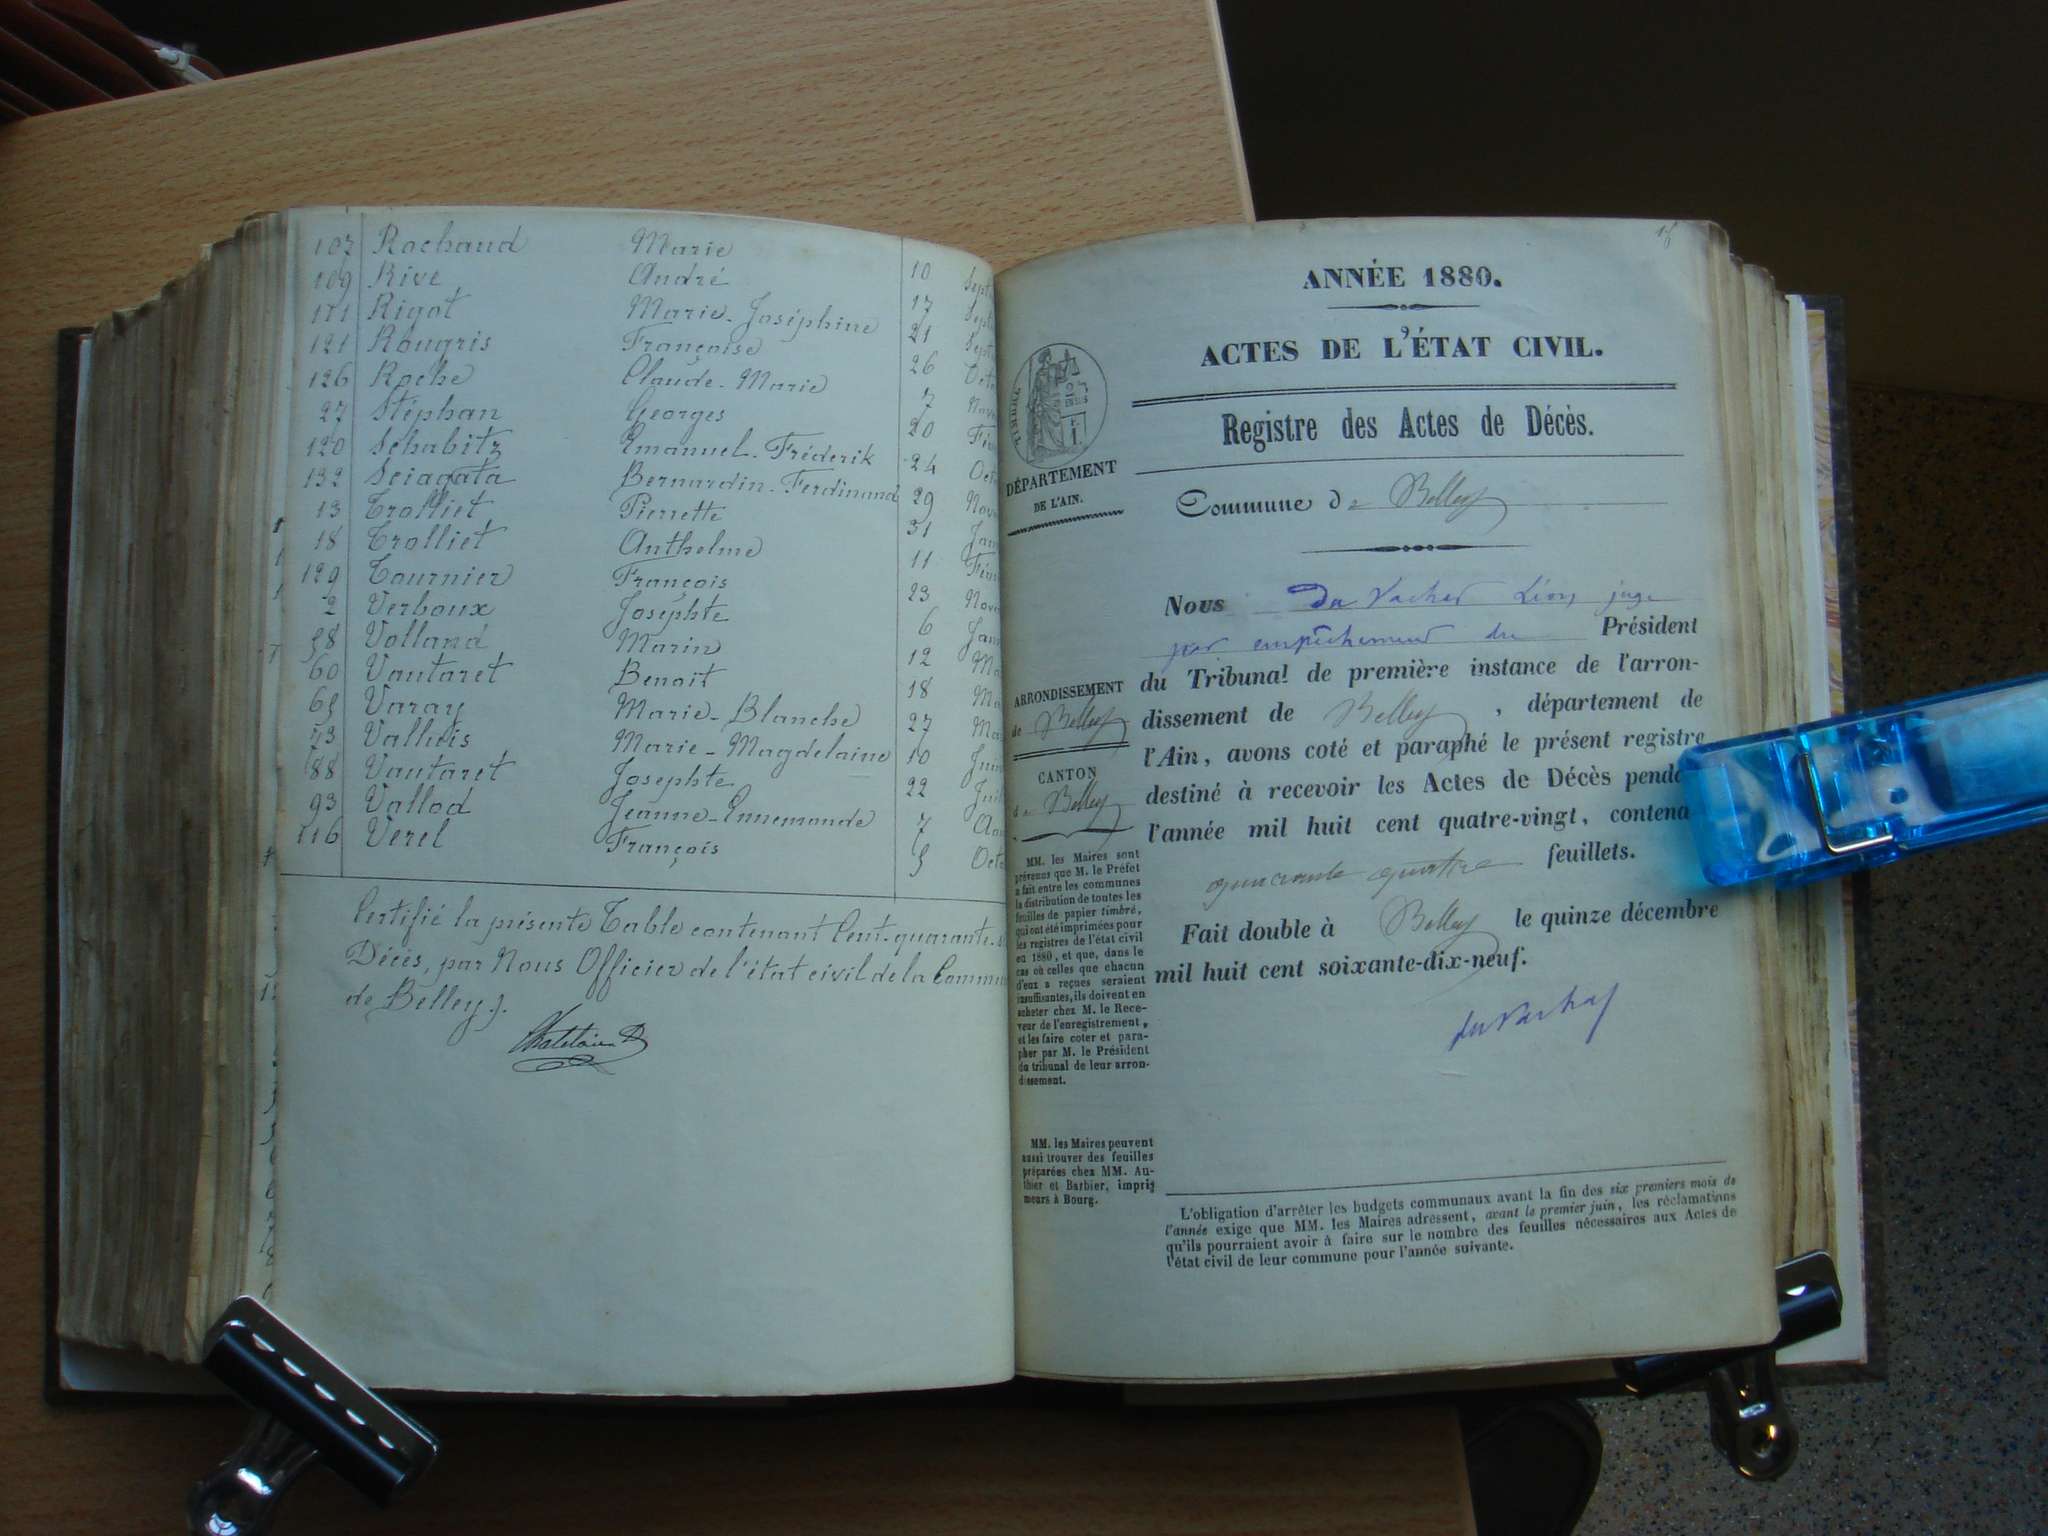 107 Rochaud Marie 10 Sept
109 Rive André 17 Sept
111 Rigot Marie-Joséphine 21 Sept
121 Rougris Françoise 26 Octo
126 Roche Claude-Marie 7 Nov
27 Stéphan Georges 20 Fév
120 Schabitz Emanuel-Fréderik 24 Octo
132 Sciagata Bernardin-Ferdinand 29 Nov
13 Trolliet Pierrette 31 Jan
18 Trolliet Anthelme 11 Fév
129 Tournier François 23 Nov
2 Verboux Josephte 6 Jan
58 Volland Marin 12 Ma
60 Vautaret Benoit 18 Ma
65 Varay Marie-Blanche 27 Ma
73 Valluis Marie-Magdelaine 10 Juin
88 Vautaret Josephte 22 Juil
93 Vallod Jeanne-Ennemonde 7 Aou
116 Verel François 5 Octo
Certifié la présente Table contenant Cent-quarante
Décès, par Nous Officier de l'état civil de la Commu
de Belley.
ANNÉE 1880.
ACTES DE L'ÉTAT CIVIL.
Registre des Actes de Décès.
Commune de Belley
TIMBRE
DÉPARTEMENT
DE L'AIN.
ARRONDISSEMENT
de Belley
CANTON
de Belley
MM. les Maires sont
prévenus que M. le Préfet
a fait entre les communes
la distribution de toutes les
feuilles de papier timbré,
qui ont été imprimées pour
les registres de l'état civil
en 1880, et que, dans le
cas où celles que chacun
d'eux a reçues seraient
insuffisantes, ils doivent en
acheter chez M. le Rece-
veur de l'enregistrement,
et les faire coter et para-
pher par M. le Président
du tribunal de leur arron-
dissement.
MM. les Maires peuvent
aussi trouver des feuilles
préparées chez MM. Au-
thier et Barbier, impri-
meurs à Bourg.
Nous Du Vachat Léon, juge
par empêchement du Président
du Tribunal de première instance de l'arron-
dissement de Belley, département de
l'Ain, avons coté et paraphé le présent registre
destiné à recevoir les Actes de Décès penda
l'année mil huit cent quatre-vingt, contena
quarante quatre feuillets.
Fait double à Belley le quinze décembre
mil huit cent soixante-dix-neuf.
du Vachat
L'obligation d'arrêter les budgets communaux avant la fin des six premiers mois de
l'année exige que MM. les Maires adressent, avant le premier juin, les réclamations
qu'ils pourraient avoir à faire sur le nombre des feuilles nécessaires aux Actes de
l'état civil de leur commune pour l'année suivante.